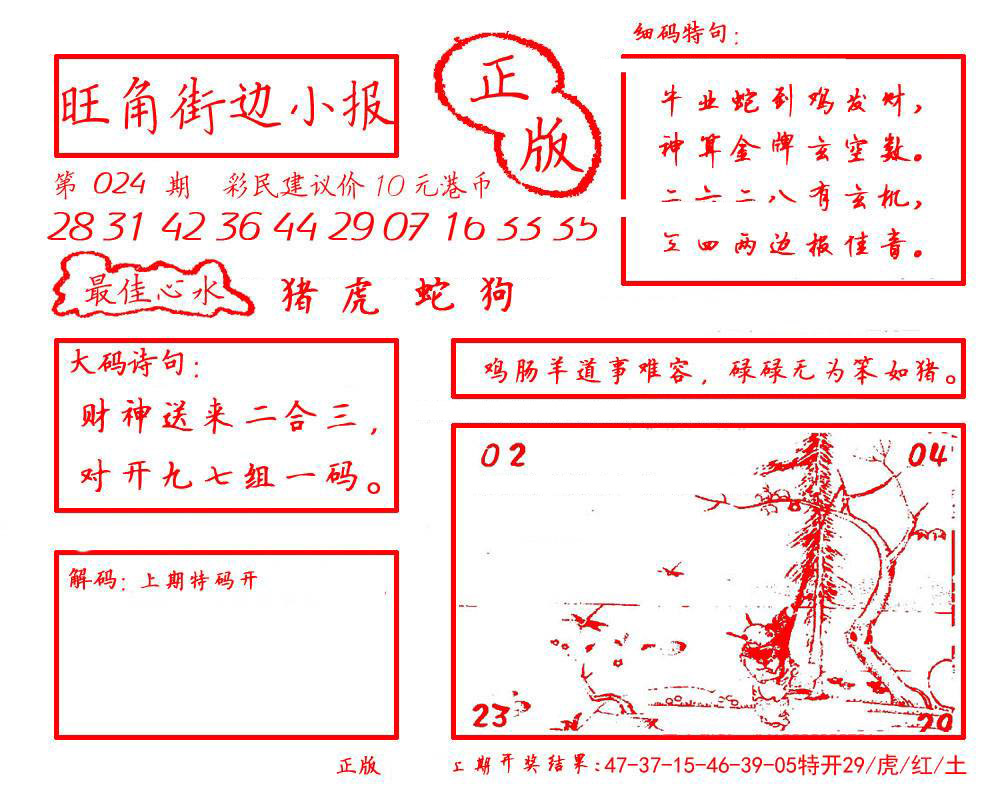 细码特句：
旺角街边小报
正
版
牛业蛇到鸡发财，
神算金牌玄空数。
二六二八有玄机，
三四两边报佳音。
第 024 期 彩民建议价10元港币
28 31 42 36 44 29 07 16 33 35
最佳心水 猪 虎 蛇 狗
大码诗句：
财神送来二合三，
对开九七组一码。
鸡肠羊道事难容，碌碌无为笨如猪。
02 04
23 20
解码：上期特码开
正版
上期开奖结果：47-37-15-46-39-05特开29/虎/红/土